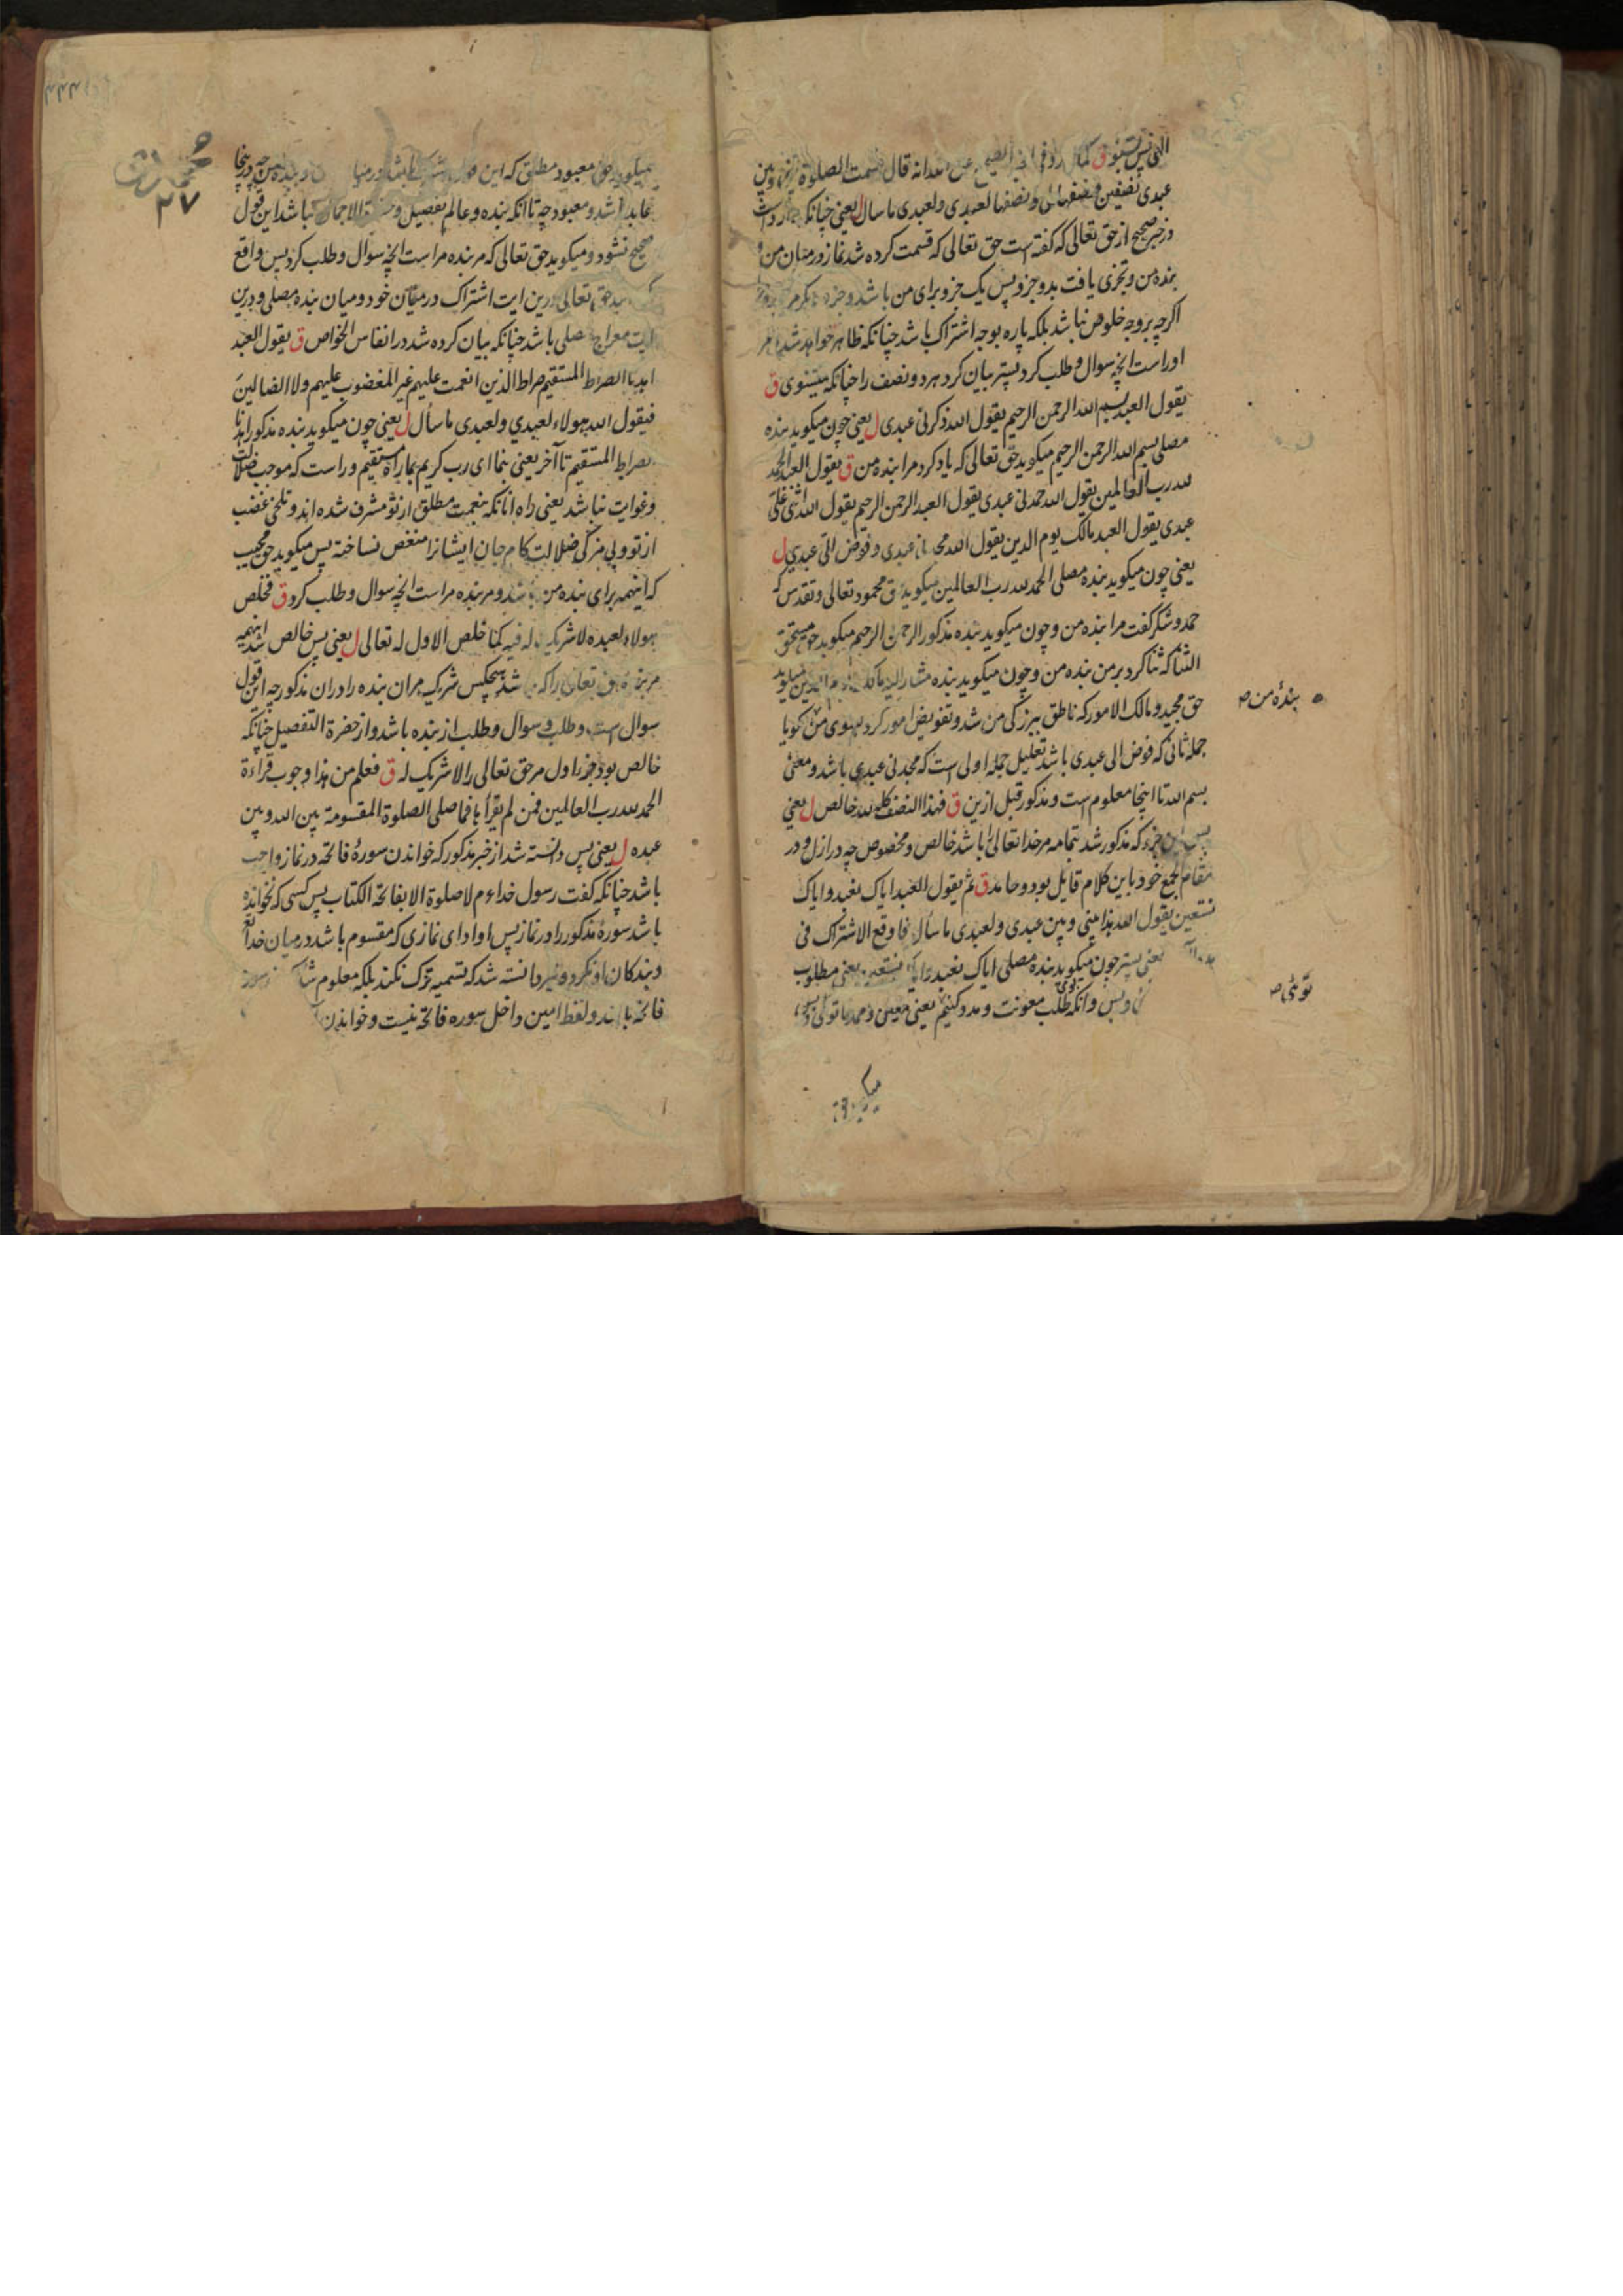 الهی پس بشنو ق کما ورد فی الخبر الصحیح عن الله انه قال قسمت الصلوة بینی وبین
عبدی نصفین فنصفها لی ونصفها لعبدی ولعبدی ما سال ل یعنی چنانکه وارد است
در خبر صحیح از حق تعالی که گفته است حق تعالی که قسمت کرده شد نماز در میان من و
بنده من وتجزی یافت بدو جزو پس یک جزو برای من باشد وجزء دیگر مر
اگرچه بر وجه خلوص نباشد بلکه پاره بوجه اشتراک باشد چنانکه ظاهر خواهد شد
اوراست انچه سوال وطلب کرد پستر بیان کرد هر دو نصف را چنانکه میشنوی ق
یقول العبد بسم الله الرحمن الرحیم یقول الله ذکرنی عبدی ل یعنی چون میگوید بنده
مصلی بسم الله الرحمن الرحیم میگوید حق تعالی که یاد کرد مرا بنده من ق یقول العبد الحمد
لله رب العالمین یقول الله حمدنی عبدی یقول العبد الرحمن الرحیم یقول الله اثنی علی
عبدی یقول العبد مالک یوم الدین یقول الله مجدنی عبدی وفوض الی عبدی ل
یعنی چون میگوید بنده مصلی الحمد لله رب العالمین میگوید حق محمود تعالی وتقدس که
حمد وشکر گفت مرا بنده من وچون میگوید بنده مذکور الرحمن الرحیم میگوید حق مستحق
الثنا که ثنا کرد بر من بنده من وچون میگوید بنده مشار الیه مالک یوم الدین میگوید
حق مجید ومالک الامور که ناطق ببزرگی من شد وتفویض امور کرد بسوی من گویا
بندۀ من صح
جمله ثانی که فوض الی عبدی باشد تعلیل جمله اولی است که مجدنی عبدی باشد ومعنی
بسم الله تا اینجا معلوم است ومذکور قبل ازین ق فهذا النصف کله لله خالص ل یعنی
پس این جزء که مذکور شد بتمامه مر خدا تعالی را باشد خالص ومخصوص چه در ازل ودر
مقام الجمع خود باین کلام قایل بود وحامد ق ثم یقول العبد ایاک نعبد وایاک
نستعین یقول الله هذا بینی وبین عبدی ولعبدی ما سأل فاوقع الاشتراک فی
هذه الآیة یعنی پستر چون میگوید بنده مصلی ایاک نعبد وایاک نستعین یعنی مطلوب
وبس وانکه طلب معونت ومدد کنیم یعنی معین وممد ما توئی وبس
توئی صح
میگوید
محمد
۲۷
میگوید حق معبود مطلق که این
عابد باشد ومعبود چه تا انکه بنده وعالم تفصیل الاجمال نباشد این قول
صحیح نشود ومیگوید حق تعالی که مر بنده مراست انچه سوال وطلب کرد پس واقع
حق تعالی درین ایت اشتراک در میان خود ومیان بنده مصلی ودرین
ایت معراج مصلی باشد چنانکه بیان کرده شد در انفاس الخواص ق یقول العبد
اهدنا الصراط المستقیم صراط الذین انعمت علیهم غیر المغضوب علیهم ولا الضالین
فیقول الله هولاء لعبدی ولعبدی ما سأل ل یعنی چون میگوید بنده مذکور اهدنا
الصراط المستقیم تا آخر یعنی بنما ای رب کریم بما راه مستقیم وراست که موجب ضلالت
وغوایت نباشد یعنی راه انانکه بنعمت مطلق از تو مشرف شده اند وتلخی غضب
از تو وبی مزگی ضلالت کام جان ایشانرا منغص نساخته پس میگوید حق مجیب
که اینهمه برای بنده من باشد ومر بنده مراست انچه سوال وطلب کرد ق فخلص
هولاء لعبده لا شریک له فیه کما خلص الاول له تعالی ل یعنی پس خالص شد اینهمه
مر بندۀ حق تعالی را که باشد هیچکس شریک مر ان بنده را در ان مذکور چه این قول
سوال است وطلب وسوال وطلب از بنده باشد واز حضرة التفصیل چنانکه
خالص بود جزء اول مر حق تعالی را لا شریک له ق فعلم من هذا وجوب قراءة
الحمد لله رب العالمین فمن لم یقرأها فما صلی الصلوة المقسومة بین الله وبین
عبده ل یعنی پس دانسته شد از خبر مذکور که خواندن سورۀ فاتحه در نماز واجب
باشد چنانکه گفت رسول خدا ءم لا صلوة الا بفاتحة الکتاب پس کسی که نخوانده
باشد سورۀ مذکور را در نماز پس او ادای نمازی که مقسوم باشد در میان خدا
وبندگان او نکرد ونیز دانسته شد که تسمیه ترک نکند بلکه معلوم
فاتحه باشد ولفظ امین داخل سوره فاتحه نیست وخواندن